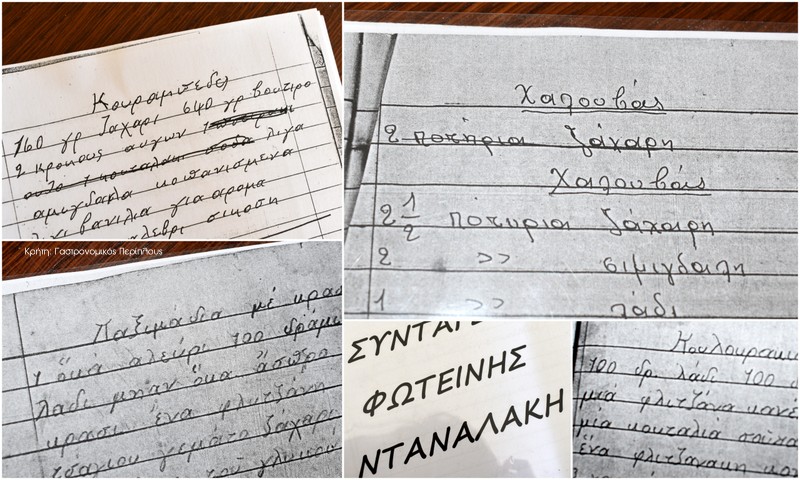 Κουραμπεδες
160 γρ ζαχαρι 640 γρ βουτιρο
2 κροκους αυγων
λιγα
αμιγδαλα κοπανισμενα
βανιλια για αρομα
αλεβρι σικοση
Κρήτη: Γαστρονομικός Περίπλους
Χαλουβάς
2 ποτήρια ζάχαρη
Χαλουβάς
2 1/2 ποτηρια ζάχαρη
2 >> σιμιγδαλη
1 >> λάδι
Παξιμάδια μέ κρασ
1 ὅκά αλεύρι 100 δράμι
λαδι μισην ὅκα ἄσπρο
κρασι ἑνα φλιτζάνι
τσαγιου γεμάτο ζάχαρι
του γλυκου
ΣΥΝΤΑΓΕ
ΦΩΤΕΙΝΗΣ
ΝΤΑΝΑΛΑΚΗ
Κουλουρακι
100 δρ. λάδι 100 δ
μιά φλιτζάνα κανέ
μία κουταλιά σούπα
ἕνα φλιτζανακη κον